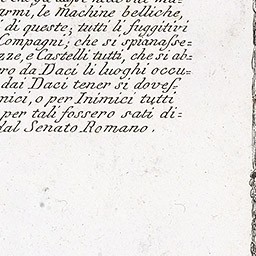 armi, le Machine belliche,
di queste; tutti li fuggitivi
Compagni; che si spianasse=
zze, e Castelli tutti, che si ab=
ro da Daci li luoghi occu=
dai Daci tener si doves=
mici, o per Inimici tutti
per tali fossero sati di=
dal Senato Romano.